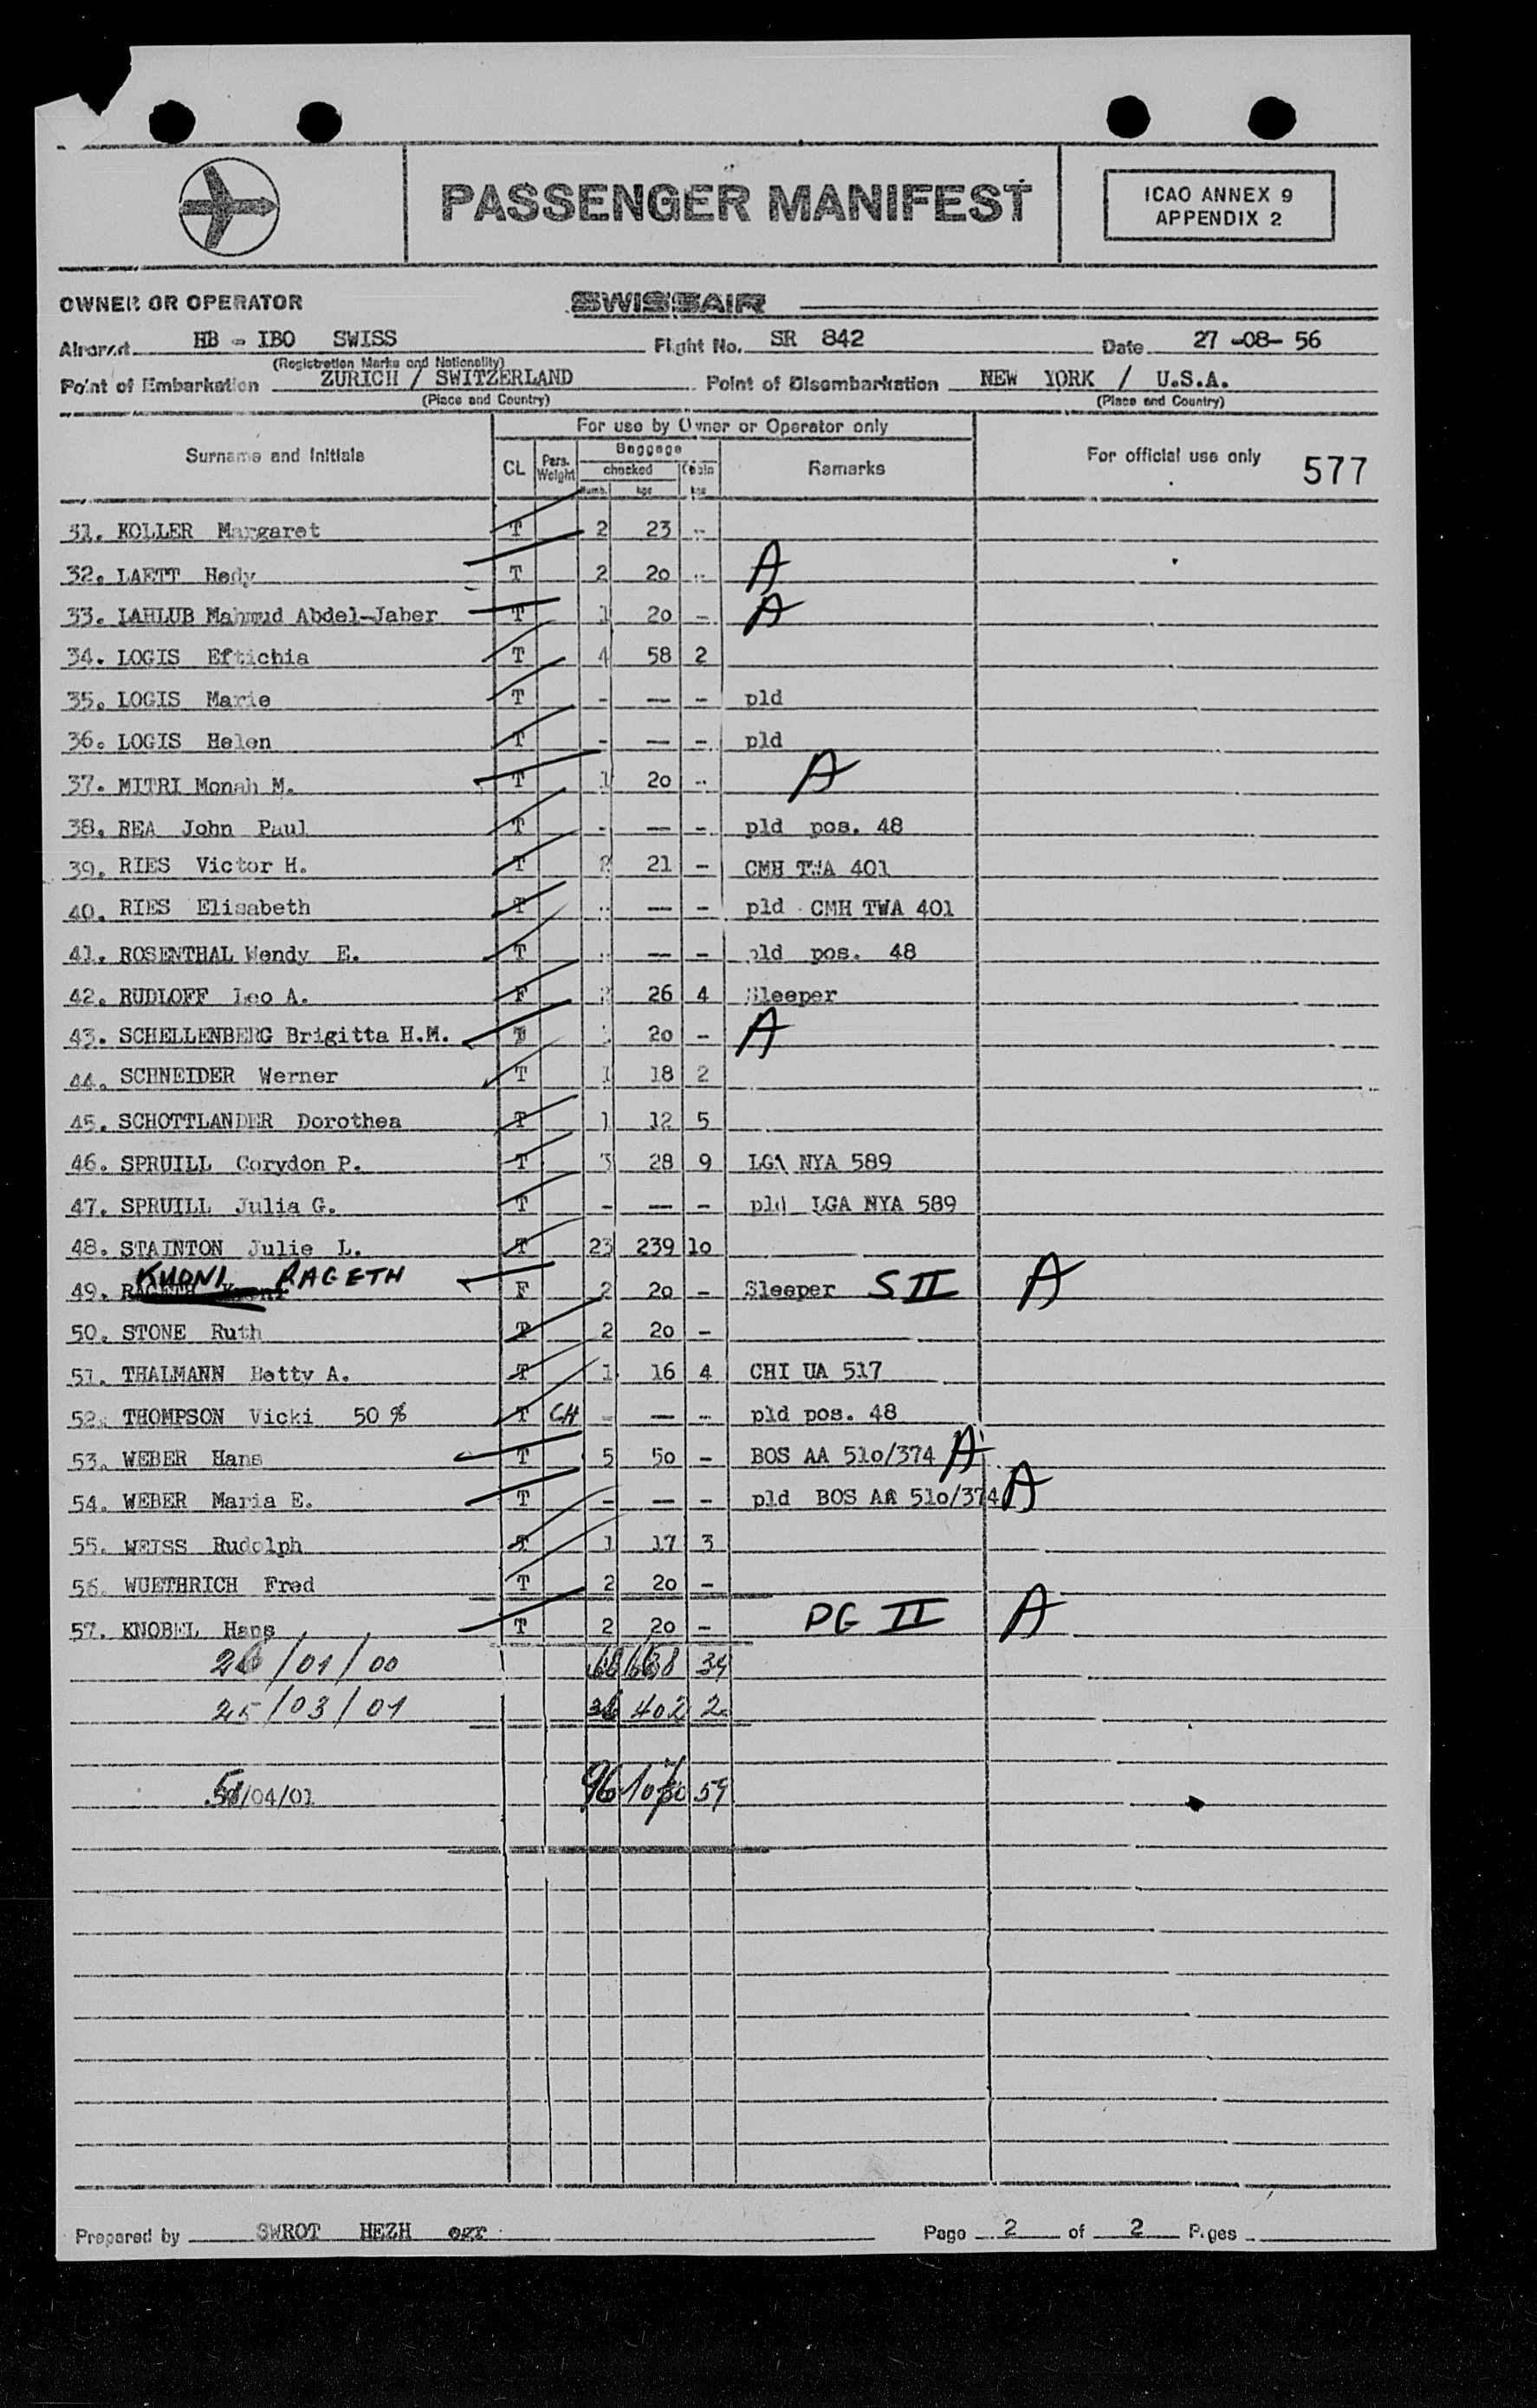 PASSENGER MANIFEST
ICAO ANNEX 9
APPENDIX 2
OWNER OR OPERATOR SWISSAIR
Aircraft HB - IBO SWISS Flight No. SR 842 Date 27 -08- 56
(Registration Marks and Nationality)
Point of Embarkation ZURICH / SWITZERLAND Point of Disembarkation NEW YORK / U.S.A.
(Place and Country) (Place and Country)
For use by Owner or Operator only
Surname and Initials CL Pers. Weight Baggage checked Cabin Remarks For official use only 577
Numb. kgs kgs
31. KOLLER Margaret T 2 23 -
32. LAETT Hedy T 2 20 - A
33. LAHLUB Mahmud Abdel-Jaber T 1 20 - A
34. LOGIS Eftichia T 4 58 2
35. LOGIS Marie T - -- - pld
36. LOGIS Helen T - -- - pld
37. MITRI Monah M. T 1 20 - A
38. REA John Paul T - -- - pld pos. 48
39. RIES Victor H. T 2 21 - CMH TWA 401
40. RIES Elisabeth T - -- - pld CMH TWA 401
41. ROSENTHAL Wendy E. T - -- - pld pos. 48
42. RUDLOFF Leo A. F 26 4 Sleeper
43. SCHELLENBERG Brigitta H.M. T 1 20 - A
44. SCHNEIDER Werner T 1 18 2
45. SCHOTTLANDER Dorothea T 1 12 5
46. SPRUILL Corydon P. T 3 28 9 LGA NYA 589
47. SPRUILL Julia G. T - -- - pld LGA NYA 589
48. STAINTON Julie L. T 23 239 10
KUONI RAGETH
49. RAGETH Kuoni F 2 20 - Sleeper S II A
50. STONE Ruth T 2 20 -
51. THALMANN Betty A. T 1 16 4 CHI UA 517
52. THOMPSON Vicki 50 % T CH - -- - pld pos. 48
53. WEBER Hans T 5 50 - BOS AA 510/374 A
54. WEBER Maria E. T - -- - pld BOS AA 510/374 A
55. WEISS Rudolph T 1 17 3
56. WUETHRICH Fred T 2 20 -
57. KNOBEL Hans T 2 20 - PG II A
26/01/00 34
25/03/01 402 2
/04/01 96 59
Prepared by SWROT HEZH egr Page 2 of 2 Pages